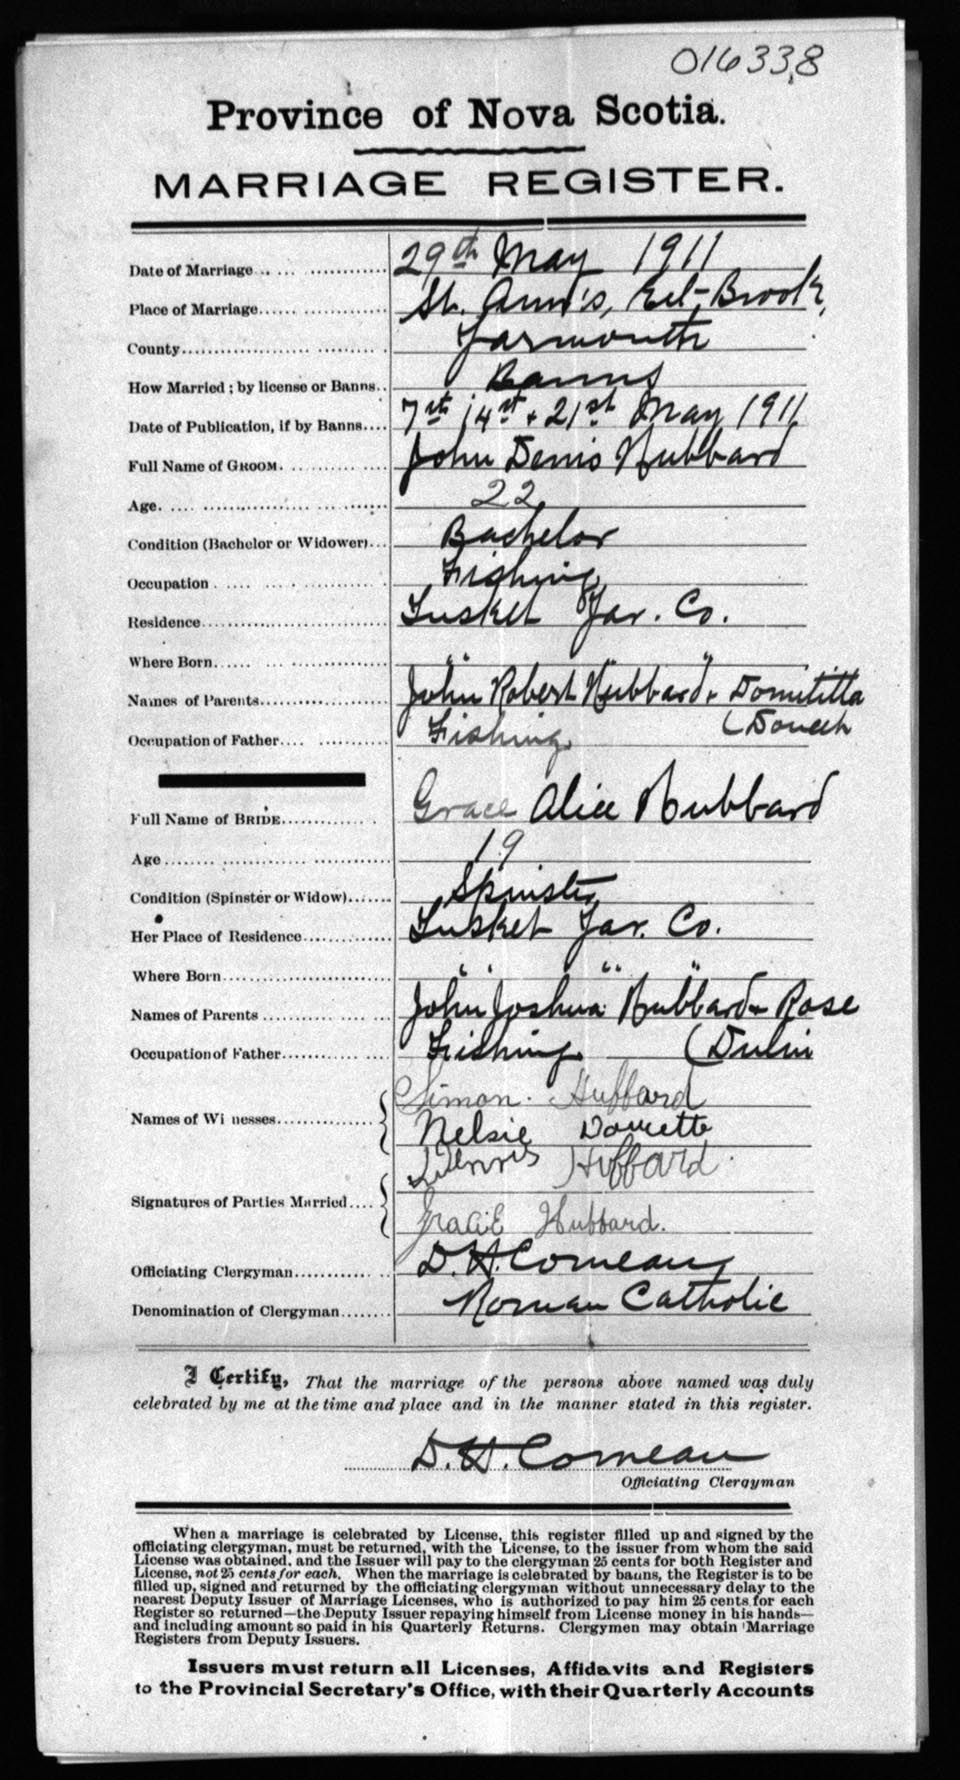 016338
Province of Nova Scotia.
MARRIAGE REGISTER.
Date of Marriage 29th May 1911
Place of Marriage St. Ann's, Eel-Brook,
County Yarmouth
How Married ; by license or Banns Banns
Date of Publication, if by Banns 7st 14st + 21st May 1911
Full Name of GROOM. John Denis Hubbard
Age 22
Condition (Bachelor or Widower) Bachelor
Occupation Fishing
Residence Tusket Yar. Co.
Where Born " " "
Names of Parents John Robert Hubbard + Domititta
(Doucet
Occupation of Father Fishing
Full Name of BRIDE Grace Alice Hubbard
Age 19
Condition (Spinster or Widow) Spinster
Her Place of Residence Tusket Yar. Co.
Where Born " " " "
Names of Parents John Joshua Hubbard + Rose
Occupation of Father Fishing (Dulin
Names of Witnesses Simon Hubbard
Nelsie Doucette
Signatures of Parties Married Dennis Hubbard
Gracie Hubbard.
Officiating Clergyman D. H. Comeau
Denomination of Clergyman Roman Catholic
I Certify, That the marriage of the persons above named was duly
celebrated by me at the time and place and in the manner stated in this register.
D. H. Comeau
Officiating Clergyman
When a marriage is celebrated by License, this register filled up and signed by the
officiating clergyman, must be returned, with the License, to the issuer from whom the said
License was obtained, and the Issuer will pay to the clergyman 25 cents for both Register and
License, not 25 cents for each. When the marriage is celebrated by banns, the Register is to be
filled up, signed and returned by the officiating clergyman without unnecessary delay to the
nearest Deputy Issuer of Marriage Licenses, who is authorized to pay him 25 cents for each
Register so returned—the Deputy Issuer repaying himself from License money in his hands—
and including amount so paid in his Quarterly Returns. Clergymen may obtain Marriage
Registers from Deputy Issuers.
Issuers must return all Licenses, Affidavits and Registers
to the Provincial Secretary's Office, with their Quarterly Accounts